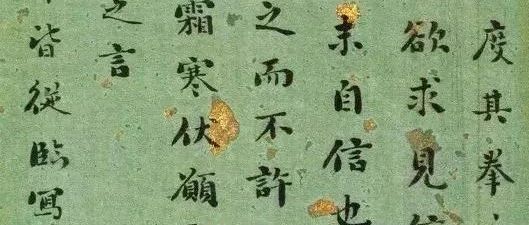 度其拳
欲求見
未自信也
之而不許
霜寒伏願
之言
皆從臨寫